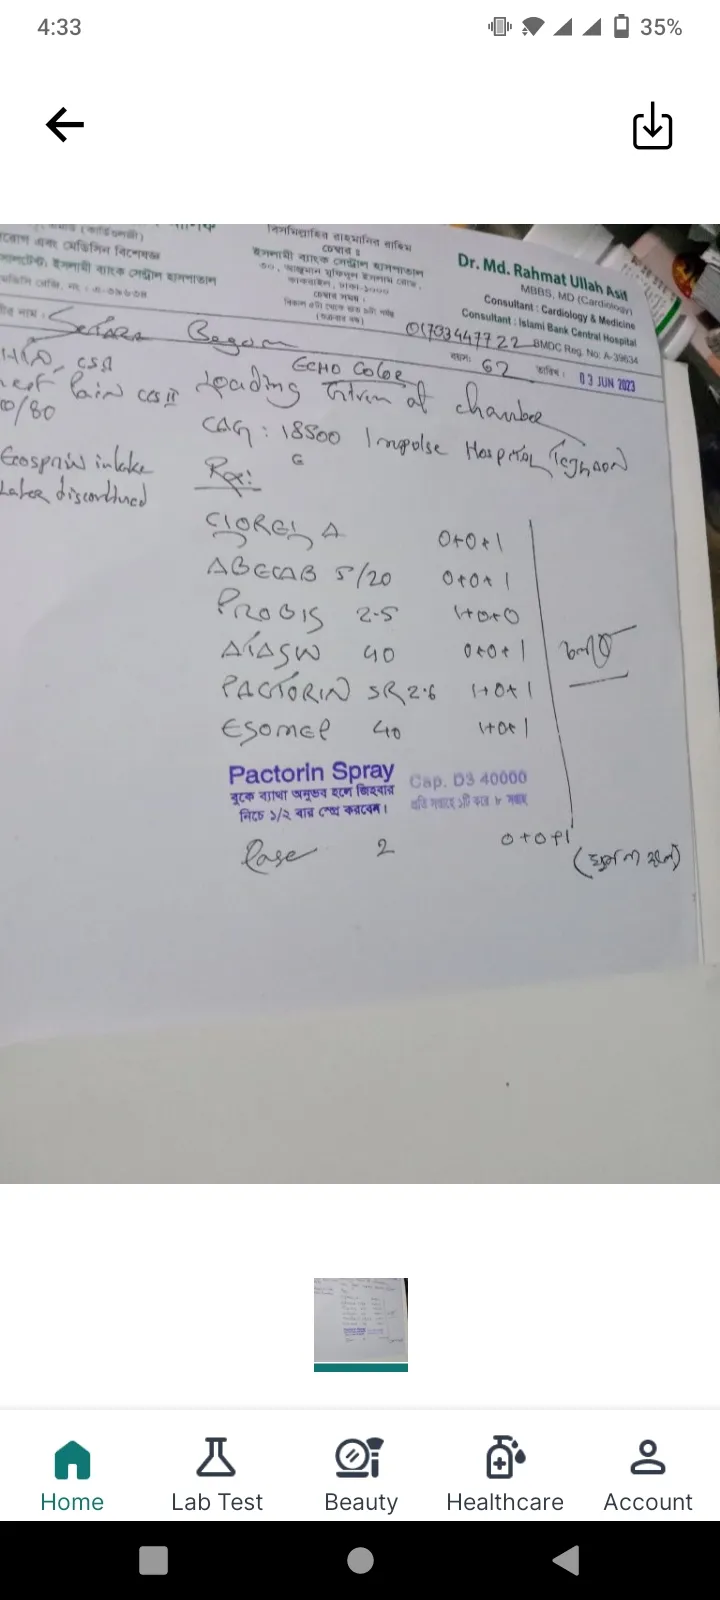 4:33
35%
(কার্ডিওলজী)
এবং মেডিসিন বিশেষজ্ঞ
ইসলামী ব্যাংক সেন্ট্রাল হাসপাতাল
বিসমিল্লাহির রাহমানির রাহিম
চেম্বার :
ইসলামী ব্যাংক সেন্ট্রাল হাসপাতাল
Dr. Md. Rahmat Ullah Asif
MBBS, MD (Cardiology)
Consultant : Cardiology & Medicine
Consultant : Islami Bank Central Hospital
BMDC Reg. No: A-39634
নাম :
Begom
01733447722
বয়স: 62
তারিখ : 03 JUN 2023
HTN, CSA
Pain CCS II
0/80
Ecosprin intake
Later discontinued
ECHO Color
Loading Given at chamber
CAG : 18500 Impulse Hospital
Rx:
CLOREL A 0+0+1
ABECAB 5/20 0+0+1
PROBIS 2.5 1+0+0
ATASIN 40 0+0+1
PACTORIN SR 2.6 1+0+1
ESOMEP 40 1+0+1
চলবে
Pactorin Spray
বুকে ব্যাথা অনুভব হলে জিহবার
নিচে ১/২ বার স্প্রে করবেন।
Cap. D3 40000
প্রতি সপ্তাহে ১টি করে ৮ সপ্তাহ
Pase 2 0+0+1
(ঘুম না হলে)
Home
Lab Test
Beauty
Healthcare
Account